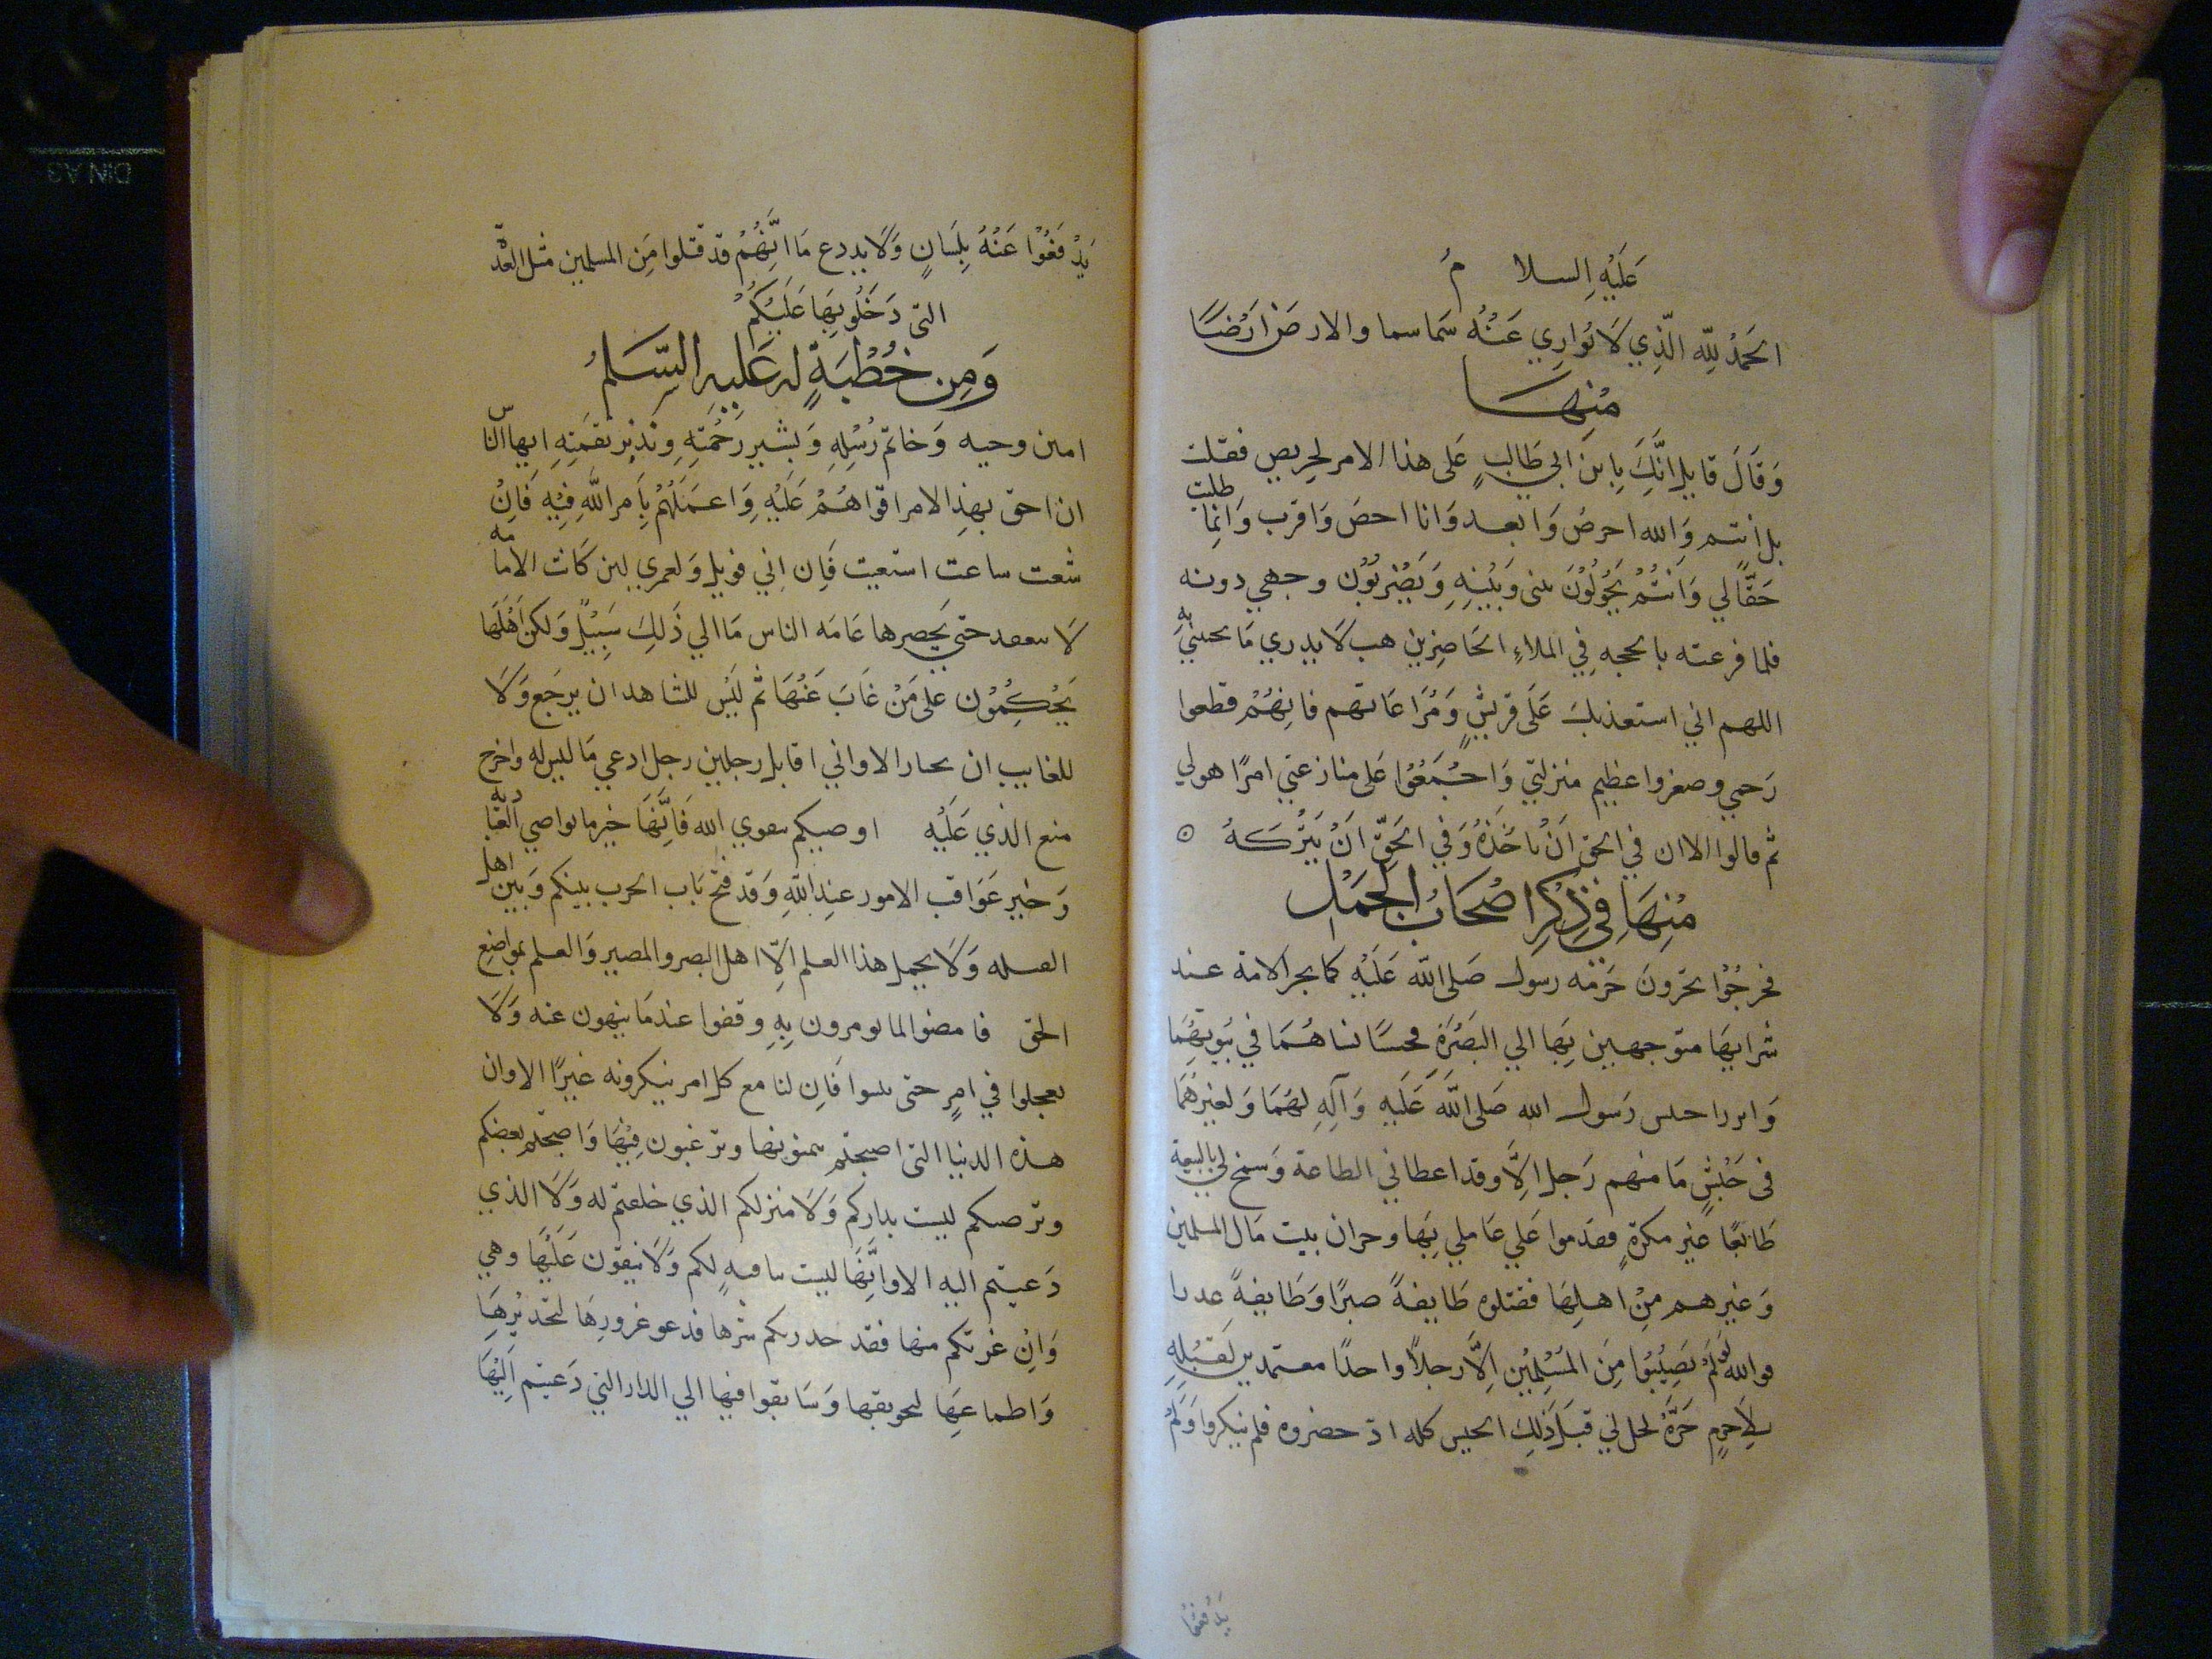 عَلَيْهِ السلا مُ
الحَمْدُ لِلّه الَّذِي لَا تُوارِي عَنْهُ سَما سما والارض ارْضًا
مِنْهَا
وَقَالَ قايل انَّكَ يا بن ابي طَالِبٍ عَلى هذا الامر لحريص فقلت
بل انتم وَالله احرصُ وَابعد وَانا اخصَ وَاقرب وَانما طلبت
حَقًّا لي وَانتُمْ تَحُولُوْنَ بيني وَبَيْنِهِ وَتَضْرِبُوْن وجهي دونه
فلما قرعته بالحجه في الملاءِ الحَاضِرين هب لَا يدري مَا يجيبني به
اللهم اني استعذبك عَلَى قريشٍ وَمُرَاعَاتهم فانهُمْ قطعوا
رَحمي وصغروا عظيم منزلتي وَاجْمَعُوْا عَلى منازعتي امرًا هو لي
ثم قالوا الا ان في الحق انْ تاخُذهُ وَفي الحَقّ انْ تَتْرُكَهُ ⊙
مِنْهَا فِي ذِكْرِ اصْحَابُ الجمَلْ
فخرجُوْا يجرّونَ حَرَمَه رسول صَلى الله عَلَيْهِ كما يجر الامة عند
شرايهَا متوجهين بِهَا الي البَصْرَةِ فحبسَا نساهُمَا في بيُوتِهُمَا
وَابرزا حبس رَسول الله صَلى اللهَ عَلَيهِ وَآلِهِ لهمَا وَلغيرهُمَا
في جَيْشٍ مَا منهم رَجل الَّا وقد اعطاني الطاعة وَسمح لي بالبيعة
طَايعًا غير مكرهٍ فقدموا عَلي عَاملي بَهَا وخزان بيت مَال المسلمين
وَغيرهم مِنْ اهلِهَا فقتلوه طَايفةً صبرًا وَطَايفةً غدرا
فوالله لَو لَمْ يصِيْبُوا مِنَ المُسْلِمِيْن اِلَّا رجلاً واحدًا معتمدين لَقتْلِهِ
بِلَا جرمٍ جَرَّهُ لحل لي قتلَ ذَلِكَ الجيش كله اذ حضروه فلم ينكروا وَلَمْ
يَدْفعُوْا
يَدْفَعُوْا عَنْهُ بِلِسَانٍ وَلَا بيد دع مَا انَّهُمْ قد قتلوا مِنَ المسلمين مثل العدّة
التي دَخَلُو بِهَا عَلَيْكُمْ
وَمِن خُطْبَةٍ له عَليهِ السَّلمُ
امين وحيه وَخاتم رُسُلِهِ وَبشير رَحْمَتِهِ وَنذير نقمَتِهِ ايها الناس
ان احق بهذِا لامر اقواهُمْ عَلَيْهِ وَاعمَلهُمْ بِاَمر اللهِ فِيْهِ فَاِنْ
شعت ساعت استعيت فَاِن ابي قوتل وَلعمري لين كَانت الامامه
لَا تنعقد حتي يَحضرها عَامَه الناس مَا الي ذَلِكَ سَبِيْل وَلكن اهْلَهَا
يَحْكُمُوْن على مَنْ غَابَ عَنْهَا ثم ليَس للشاهد ان يرجَع وَلَا
للغايب ان يحتار الا واني اقاتل رجلين رجل ادعي مَا ليس له واخرج
منع الذي عَلَيْهِ اوصيكم بتقوي الله فَاِنَّهَا خير ما تواصي العُبَاد بهِ
وَخير عَوَاقب الامور عنِد اللهِ وَقد فتح بَاب الحرب بينكم وَبين اهل
القبله وَلَا يحمِل هذا العلم اِلّا اهل البصر والمصبر وَالعلم بمواضِع
الحق فامضوا لما تومرون بِهِ وقفوا عندمَا ينهون عنه وَلَا
تعجلوا في امرٍ حتى تبينوا فَاِن لنا مع كل امر تنكرونه غيرًا الا وان
هذه الدنيا التي اصبحتم تتمنونها وترغبون فِيْهَا وَاصبحتم تغضبكم
وترضيكم ليست بداركم وَلَا منزلكم الذي خلقتم له وَلَا الذي
دَعيتم اليه الا واِنَّهَا ليست بباقيهٍ لكم وَلَا تبقون عَلَيْهَا وهي
وَاِنْ غرتكم منها فقد حذرتكم شرها فدعو غرورهَا لتحذيرِهَا
وَاطماعِهَا لتخويفها وَسَابقوا فيها الي الدار التي دَعيتم اِلَيْهَا